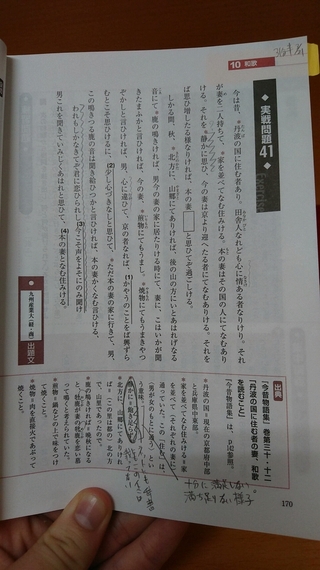 10 和歌
◆ 実戦問題 41 ◆
今は昔、＊丹波の国に住む者あり。田舎人なれども心に情ある者なりけり。それ
が妻を二人持ちて、＊家を並べてなむ住みける。本の妻はその国の人にてなむあり
ける。それを＊静かに思ひ、今の妻は京より迎へたる者にてなむありける。それを
ば思ひ増したる様なりければ、本の妻 □ と思ひてぞ過ごしける。
しかる間、秋、＊北方に、山郷にてありければ、後の山の方にいとあはれげなる
音にて、＊鹿の鳴きければ、男今の妻の家に居たりける時にて、妻に、こはいかが聞
きたまふかと言ひければ、今の妻、＊煎物にてもうまし、＊焼物にてもうまきやつ
ぞかしと言ひければ、男、心に違ひて、京の者なれば、(1)かやうのことをば興ずら
むとこそ思ひけるに、(2)少し心づきなしと思ひて、＊ただ本の妻の家に行きて、男、
この鳴きつる鹿の音は聞き給ひつやと言ひければ、本の妻かくなむ言ひける。
われもしかなきてぞ君に恋ひられし(3)今こそ声をよそにのみ聞け
男これを聞きていみじくあはれと思ひて、(4)本の妻となむ住みける。
◆ 九州産業大（経・商） 出題文
出典
『今昔物語集』巻第三十・十二
「丹波の国に住む者の妻、和歌
を読むこと」
『今昔物語集』は、p.12参照。
＊丹波の国＝現在の京都府中部
と兵庫県中東部。
＊家を並べてなむ住みける＝家
を並べて（それぞれの妻に）
通っていた。この「住む」は、
（男が女のもとに）通う」とい
う意味。
＊静かに＝飽き足らず
＊北方に、山郷にてありければ
＊鹿の鳴きければ＝晩秋になる
と、牡鹿が妻の牝鹿を恋い慕
って鳴くと考えられていた。
＊煎物＝鍋などの上で焼をつけ
て焼くこと。
＊焼物＝肉を直接火であぶって
焼くこと。
170